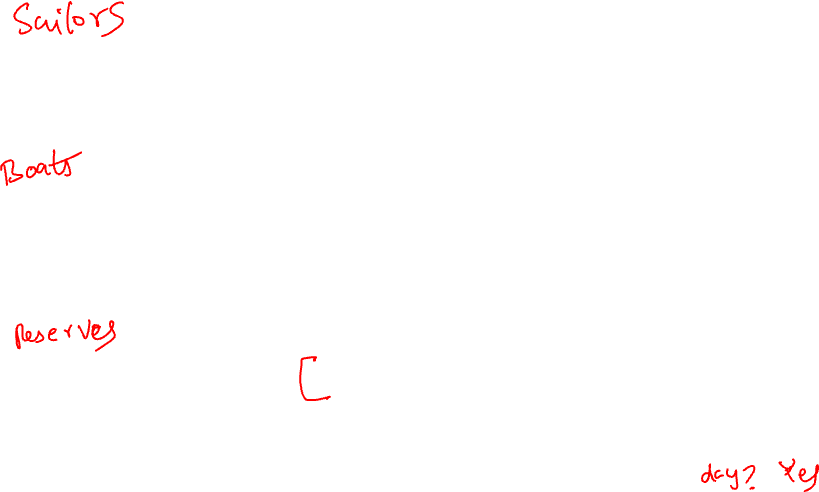 Sailors
Boats
Reserves
[
day? Yes